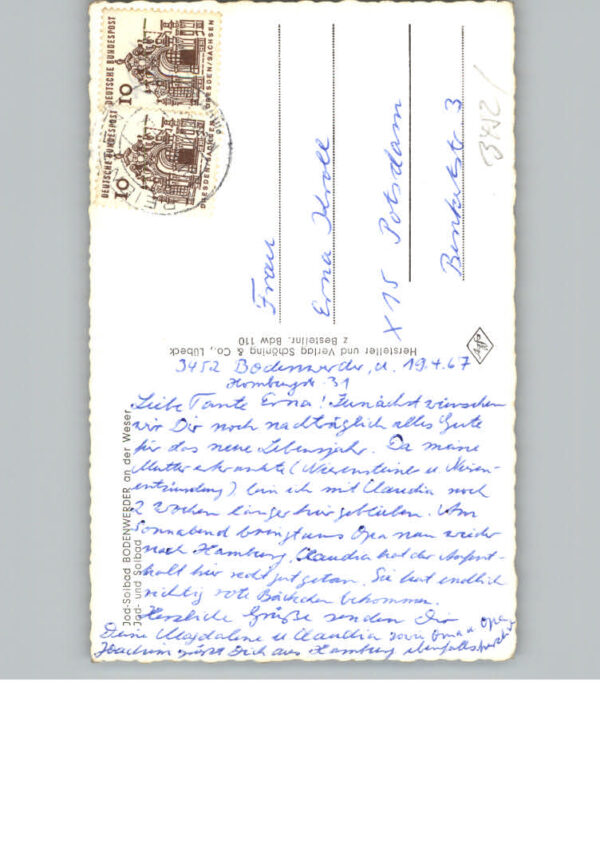 DEUTSCHE BUNDESPOST
10
DRESDEN/SACHSEN
DEUTSCHE BUNDESPOST
10
DRESDEN/SACHSEN
Frau
Erna Kroll
X 15 Potsdam
3
3412/
Agfa
Hersteller und Verlag Schöning & Co., Lübeck
z Bestellnr. Bdw 110
Jod-Solbad BODENWERDER an der Weser
Jod- und Solbad
3452 Bodenwerder, d. 19.4.67
Homburgstr. 31
Liebe Tante Erna! Zunächst wünschen
wir Dir noch nachträglich alles Gute
für das neue Lebensjahr. Da meine
Mutter erkrankte (Nierensteine u Nieren-
entzündung), bin ich mit Claudia noch
2 Wochen länger hiergeblieben. Am
Sonnabend bringt uns Opa nun wieder
nach Hamburg. Claudia hat der Aufent-
halt hier recht gut getan. Sie hat endlich
richtig rote Bäckchen bekommen.
Herzliche Grüße senden Dir
Deine Magdalene u Claudia sowie Oma u Opa
Joachim grüßt Dich aus Hamburg ebenfalls herzlich